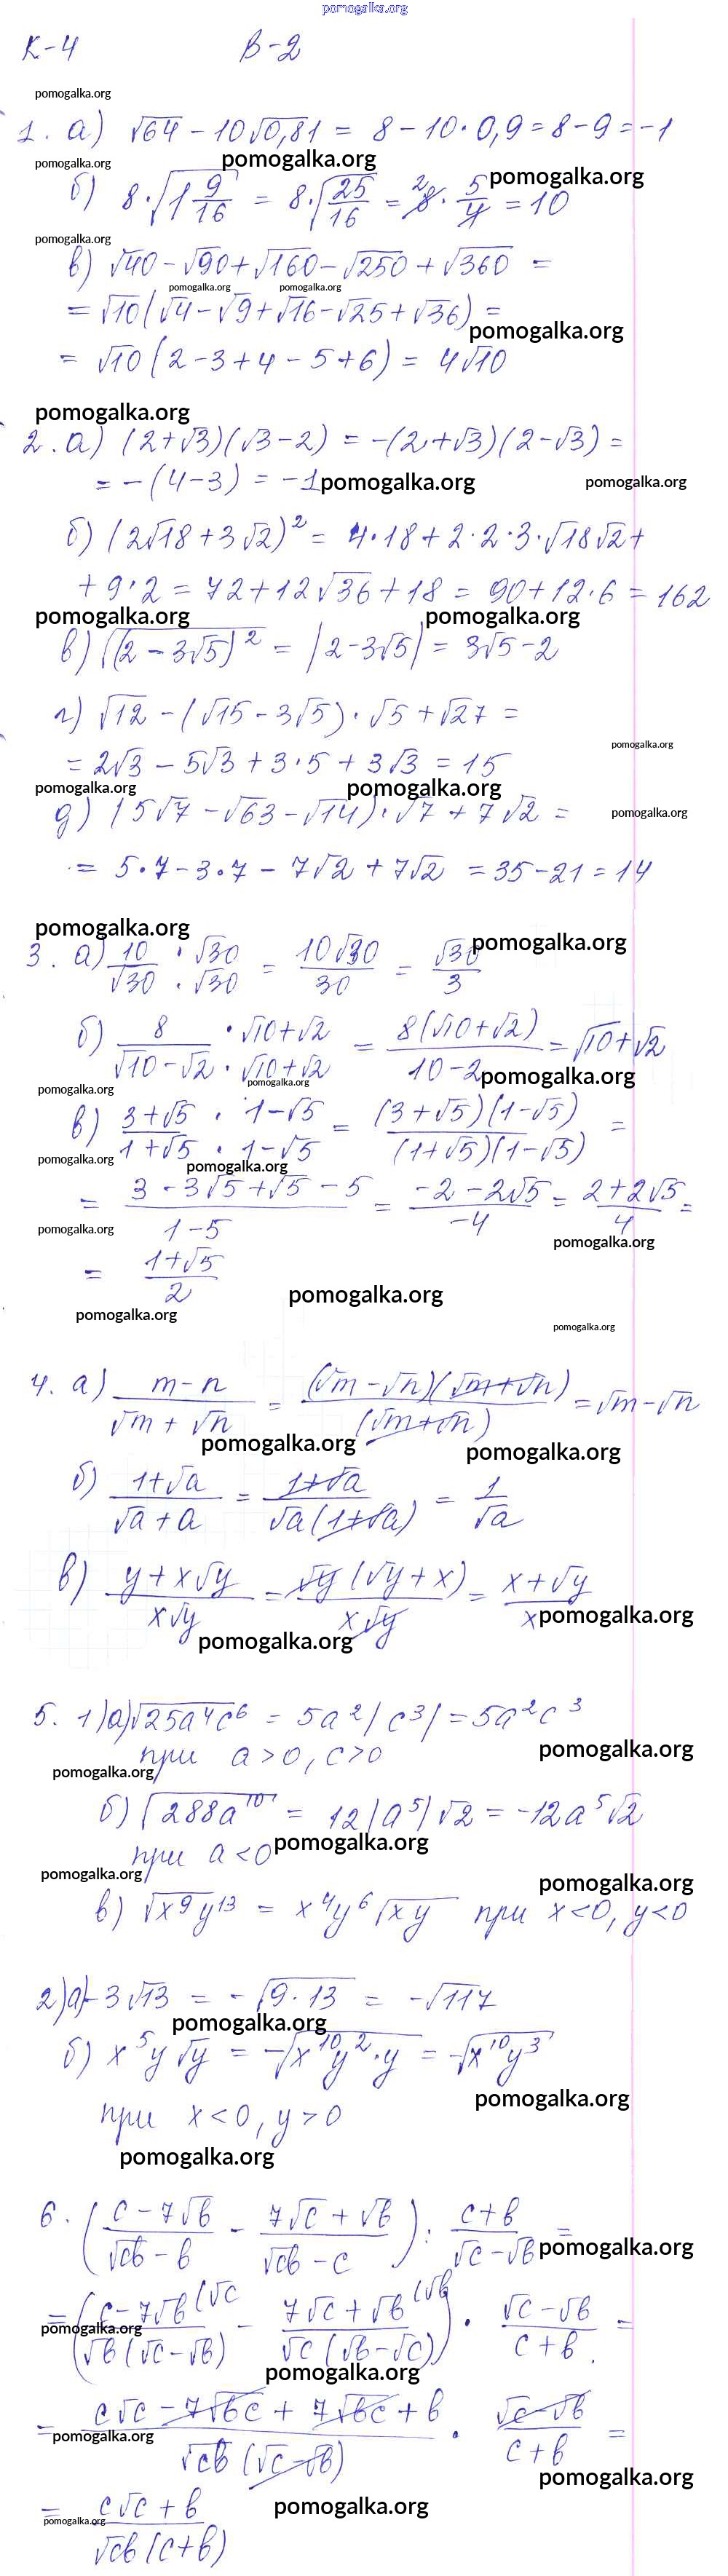 pomogalka.org
К-4 В-2
pomogalka.org
1. а) √64 - 10√0,81 = 8 - 10·0,9 = 8 - 9 = -1
pomogalka.org pomogalka.org
б) 8·√(1 9/16) = 8·√(25/16) = 8·5/4 = 10
pomogalka.org
pomogalka.org
в) √40 - √90 + √160 - √250 + √360 =
pomogalka.org pomogalka.org
= √10(√4 - √9 + √16 - √25 + √36) =
pomogalka.org
= √10(2 - 3 + 4 - 5 + 6) = 4√10
pomogalka.org
2. а) (2+√3)(√3-2) = -(2+√3)(2-√3) =
= -(4-3) = -1
pomogalka.org pomogalka.org
б) (2√18 + 3√2)² = 4·18 + 2·2·3·√18√2 +
+ 9·2 = 72 + 12√36 + 18 = 90 + 12·6 = 162
pomogalka.org pomogalka.org
в) √((2 - 3√5)²) = |2 - 3√5| = 3√5 - 2
г) √12 - (√15 - 3√5)·√5 + √27 =
pomogalka.org
= 2√3 - 5√3 + 3·5 + 3√3 = 15
pomogalka.org pomogalka.org
д) (5√7 - √63 - √14)·√7 + 7√2 =
pomogalka.org
= 5·7 - 3·7 - 7√2 + 7√2 = 35 - 21 = 14
pomogalka.org pomogalka.org
3. а) 10/√30 ·√30/·√30 = 10√30/30 = √30/3
б) 8/(√10-√2) ·√10+√2/·√10+√2 = 8(√10+√2)/(10-2) = √10+√2
pomogalka.org pomogalka.org
pomogalka.org
в) (3+√5)/(1+√5) · 1-√5/· 1-√5 = (3+√5)(1-√5)/((1+√5)(1-√5)) =
pomogalka.org pomogalka.org
= (3 - 3√5 + √5 - 5)/(1-5) = (-2-2√5)/(-4) = (2+2√5)/4 =
pomogalka.org pomogalka.org
= (1+√5)/2
pomogalka.org
pomogalka.org
pomogalka.org
4. а) (m-n)/(√m+√n) = (√m-√n)(√m+√n)/(√m+√n) = √m-√n
pomogalka.org pomogalka.org
б) (1+√a)/(√a+a) = (1+√a)/(√a(1+√a)) = 1/√a
в) (y+x√y)/(x√y) = √y(√y+x)/(x√y) = (x+√y)/x
pomogalka.org
pomogalka.org
5. 1) а) √(25a⁴c⁶) = 5a²|c³| = 5a²c³
при a>0, c>0
pomogalka.org
pomogalka.org
б) √(288a¹⁰) = 12|a⁵|√2 = -12a⁵√2
при a<0
pomogalka.org
pomogalka.org pomogalka.org
в) √(x⁹y¹³) = x⁴y⁶√(xy) при x<0, y<0
2) а) -3√13 = -√(9·13) = -√117
pomogalka.org
б) x⁵y√y = -√(x¹⁰y²·y) = -√(x¹⁰y³)
pomogalka.org
при x<0, y>0
pomogalka.org
6. ((c-7√b)/(√cb-b) - (7√c+√b)/(√cb-c)) : (c+b)/(√c-√b) =
pomogalka.org
= ((c-7√b(√c)/(√b(√c-√b)) - (7√c+√b(√b)/(√c(√b-√c))) · (√c-√b)/(c+b) =
pomogalka.org
pomogalka.org
= (c√c - 7√bc + 7√bc + b)/(√cb(√c-√b)) · (√c-√b)/(c+b) =
pomogalka.org
pomogalka.org
= (c√c+b)/(√cb(c+b))
pomogalka.org pomogalka.org